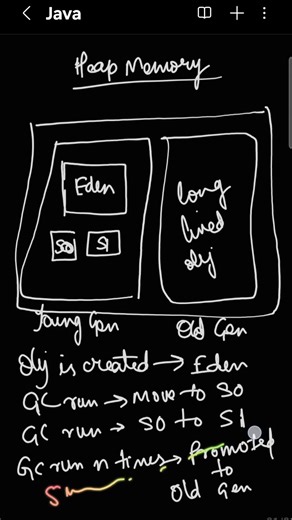 Java
Heap Memory
Eden
S0
S1
long
lived
obj
Young Gen
Old Gen
Obj is created → Eden
GC run → Move to S0
GC run → S0 to S1
GC run n times → Promoted
to
Old Gen